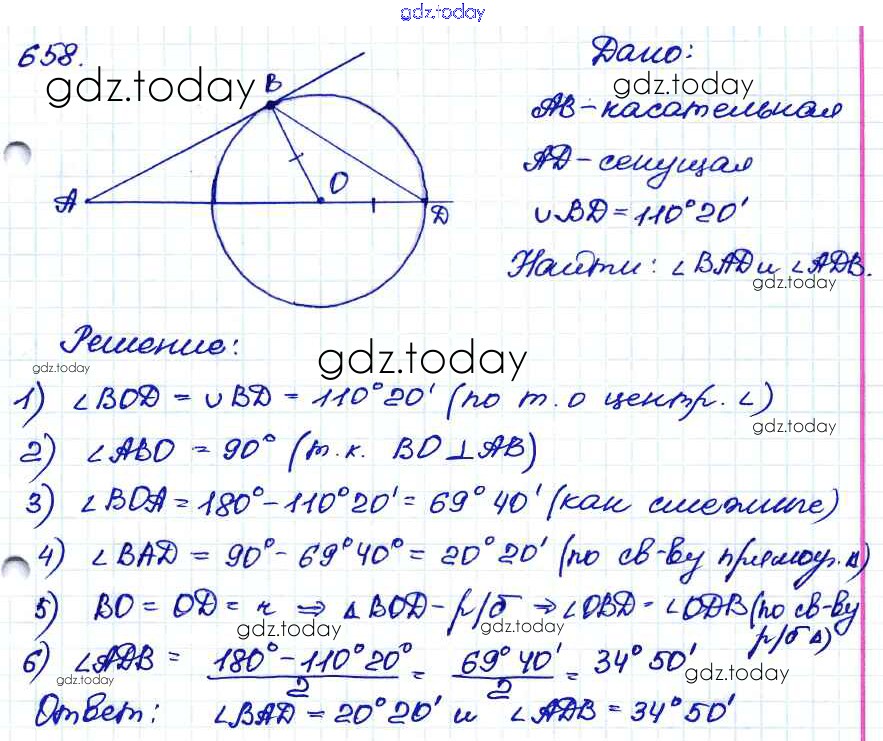 gdz.today
658.
gdz.today
B
A
O
D
Дано:
gdz.today
AB - касательная
AD - секущая
∪BD = 110°20'
Найти: ∠BAD и ∠ADB.
gdz.today
Решение:
gdz.today
gdz.today
1) ∠BOD = ∪BD = 110°20' (по т. о центр. ∠)
gdz.today
2) ∠ABO = 90° (т.к. BO ⊥ AB)
3) ∠BOA = 180° - 110°20' = 69°40' (как смежные)
4) ∠BAD = 90° - 69°40° = 20°20' (по св-ву прямоуг. Δ)
5) BO = OD = r ⇒ ΔBOD - р/б ⇒ ∠OBD = ∠ODB (по св-ву
р/б Δ)
gdz.today
gdz.today
6) ∠ADB = (180° - 110°20°)/2 = 69°40'/2 = 34°50'
gdz.today
Ответ: ∠BAD = 20°20' и ∠ADB = 34°50'